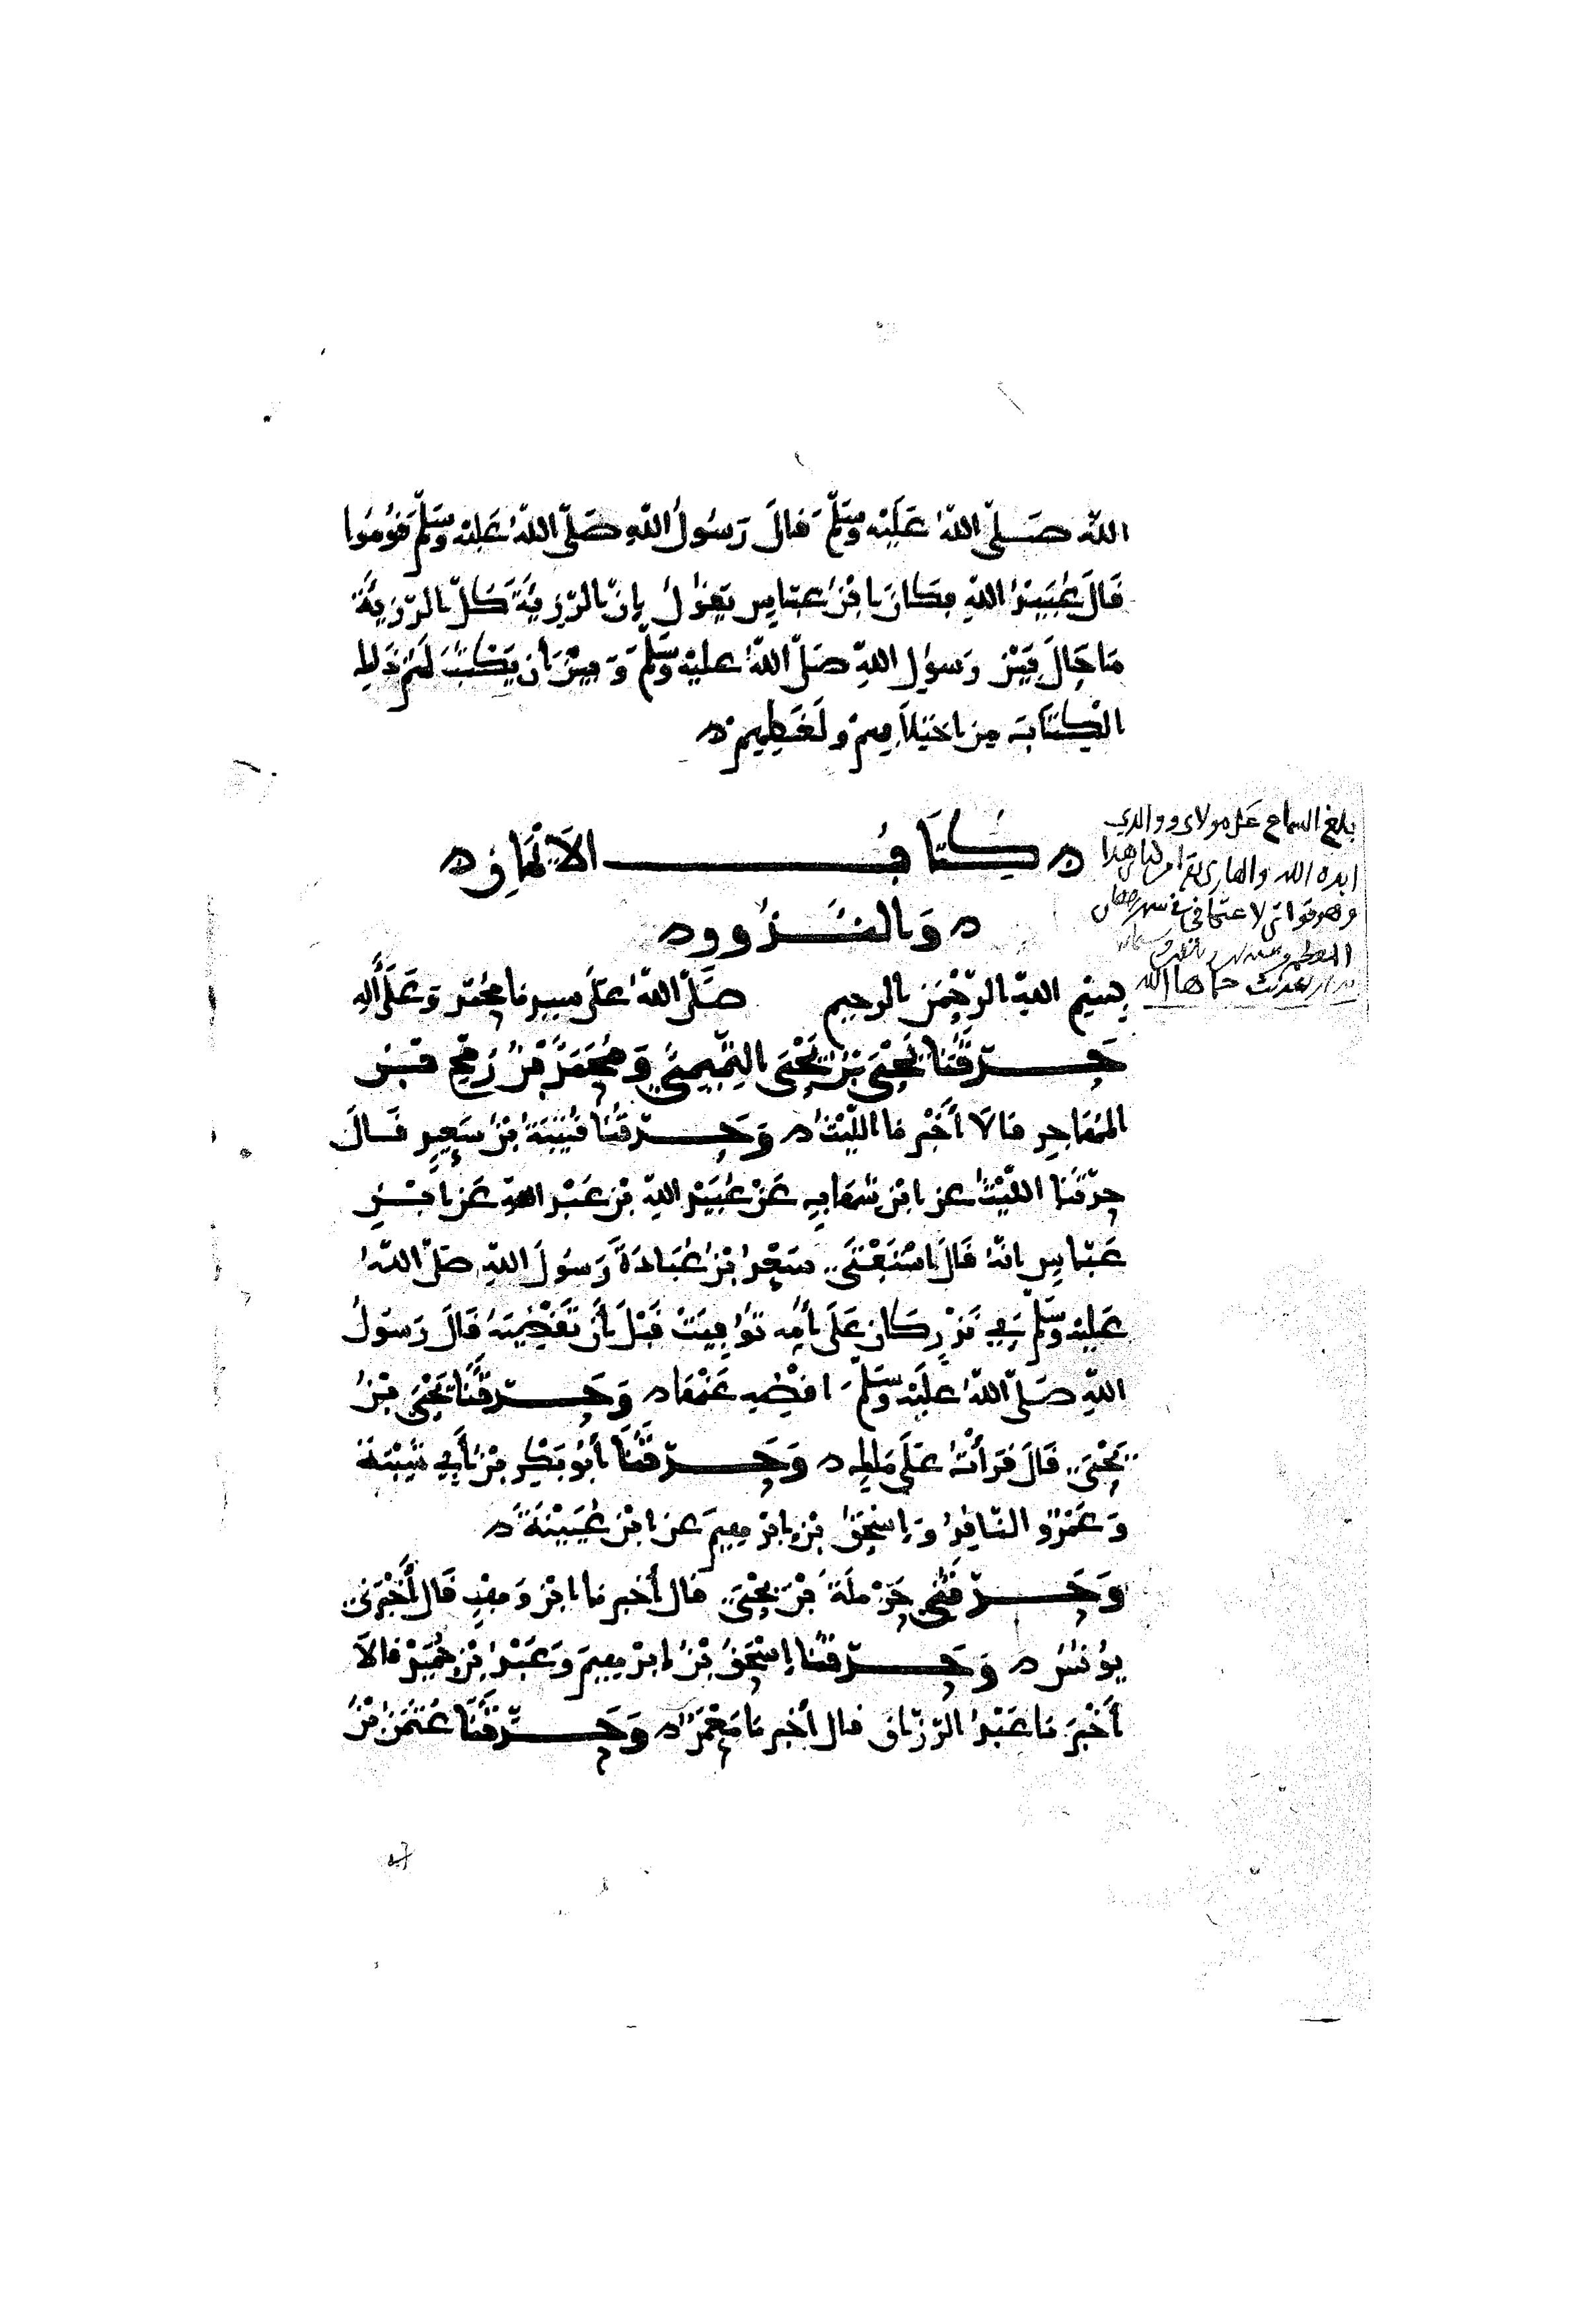 الله صَلَّى اللهُ عَلَيْهِ وَسَلَّمَ قالَ رَسُولُ اللهِ صَلَّى اللهُ عَلَيْهِ وَسَلَّمَ قُومُوا
قَالَ عُبَيْدُ اللهِ فكَانَ ابْنُ عبّاسٍ يَقُولُ إِنّ الرَّزِيَّةَ كُلَّ الرَّزِيَّةِ
مَا حَالَ بَيْنَ رَسولِ اللهِ صَلَّى اللهُ عليْهِ وَسَلَّمَ وَبيْنَ أن يَكْتُبَ لَهُمْ ذَلِك
الْكِتَابَ مِن اخْتِلافِهِمْ وَلَغَطِهِمْ ه
ه كِتَابُ الأَيْمَانِ ه
ه وَالنُّذُورِ ه
بِسْمِ اللهِ الرَّحْمَنِ الرحيم صَلَّى اللهُ عَلَى سيدِنا مُحَمَّدٍ وَعَلَى آلِهِ
حَدَّثَنَا يَحْيَى بْنُ يَحْيَى التَّمِيمِيُّ وَمُحَمَّدُ بْنُ رُمْحِ بْنِ
المُهَاجِرِ قالَا أَخْبَرنا اللَّيْثُ ه وَحَدَّثَنَا قُتَيْبَةُ بْنُ سَعِيدٍ قَالَ
حدّثَنَا اللَّيْثُ عنِ ابْنِ شهَابٍ عَنْ عُبَيْدِ اللهِ بْنِ عَبْدِ اللهِ عَنِ ابْنِ
عَبّاسٍ انّهُ قَالَ اسْتَفْتَى سَعْدُ بْنُ عُبَادَةَ رَسُولَ اللهِ صَلّى اللهُ
عَلَيْهِ وَسَلَّمَ فِي نَذْرٍ كَانَ عَلَى أُمِّهِ تُوُفِيَتْ قَبْلَ أَنْ تَقْضِيَهُ قَالَ رَسُولُ
اللهِ صَلَّى اللهُ عَلَيْهِ وَسَلَّمَ اقْضِهِ عَنْهَا ه وَحَدَّثَنَا يَحْيَى بْنُ
يَحْيَى قَالَ قَرَأْتُ عَلَى مَالِكٍ ه وَحَدَّثَنَا أَبُو بَكْرِ بْنُ أَبِي شَيْبَةَ
وَعَمْرٌو النَّاقِدُ وَإِسْحَقُ بْنُ إِبْرَهِيمَ عنِ ابْنِ عُيَيْنَةَ ه
وَحَدَّثَنِي حَرْمَلَةُ بْنُ يَحْيَى قال أخبرنا ابْنُ وَهْبٍ قَالَ أَخْبَرَنِي
يُونُسُ ه وَحَدَّثَنَا إِسْحَقُ بْنُ إِبْرَهِيمَ وَعَبْدُ بْنُ حُمَيْدٍ قالَا
أَخْبَرَنَا عَبْدُ الرَّزَّاقِ قال أَخْبرنا مَعْمَرٌ ه وَحَدَّثَنَا عُثْمَنُ بْنُ
بلغ السماع على مولاي ووالدي
ايده الله
حماها الله